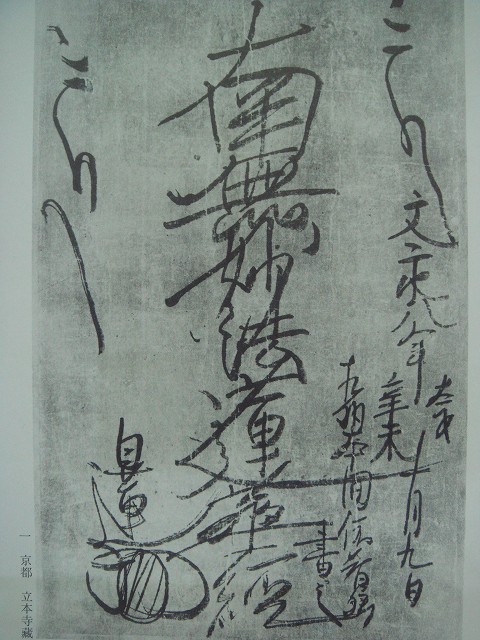 文永八年太才辛未十月九日
相州本間依智郷
書之
南無妙法蓮華經
日蓮
一 京都 立本寺蔵